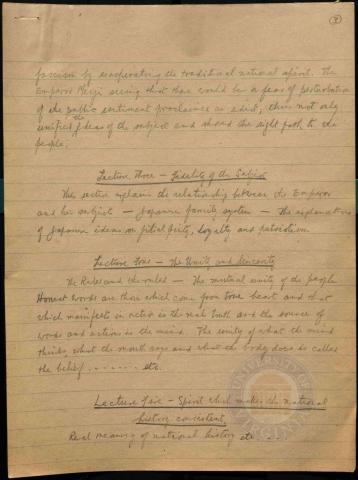 7
fascism by exasperating the traditional national spirit. The
Emperor Meiji seeing that there would be a fear of perturbation
of the public sentiment proclaimed an edict, thus not only
unified the ideas of the subject and showed the right path to the
people.
Lecture Three - Fidelity of the Subject
This section explains the relationship between the Emperor
and his subjects - Japanese family system - The explanations
of Japanese ideas on filial piety, loyalty and patriotism.
Lecture Four - The Unity and Sincerity
The Rules and the ruled - The mutual unity of the people
Honest words are those which come from true heart and that
which manifests in action is the real truth and the source of
words and actions is the mind. The unity of what the mind
thinks, what the mouth says and what the body does is called
the belief ........ etc.
Lecture Five - Spirit which makes the national
history consistent.
Real meaning of national history etc ...
UNIVERSITY OF VIRGINIA